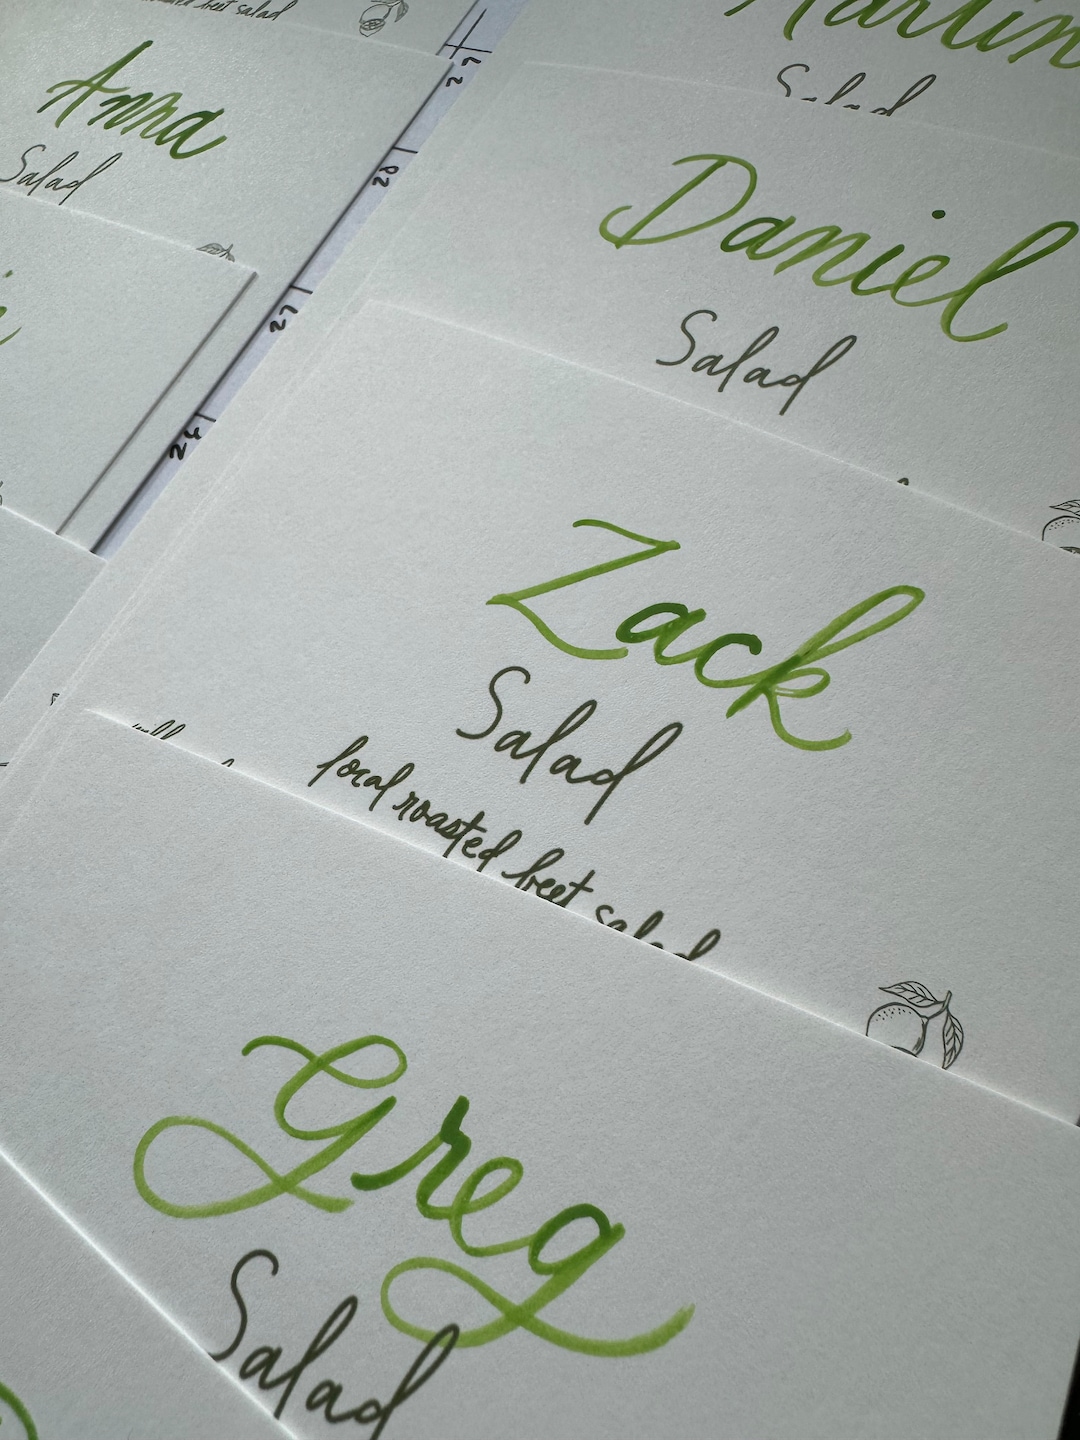 beet salad
Anna
Salad
27
28
27
24
Martin
Salad
Daniel
Salad
Zack
Salad
local roasted beet salad
Greg
Salad